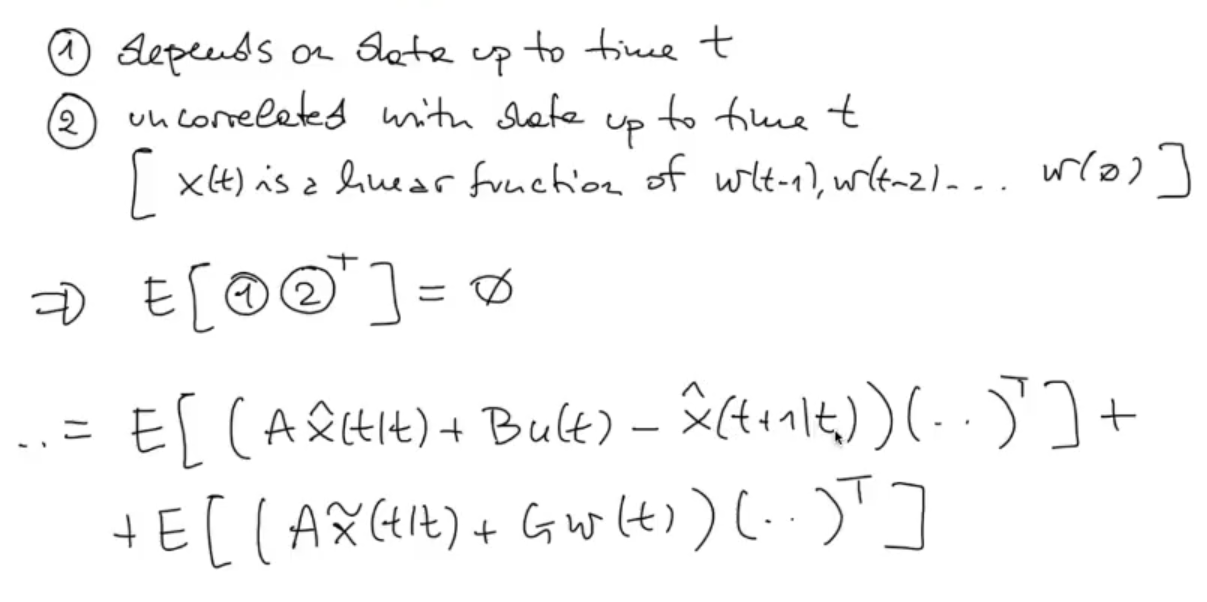 ① depends on data up to time t
② uncorrelated with data up to time t
[ x(t) is a linear function of w(t-1), w(t-2) - - - w(∅) ]
⇒ E[ ① ②ᵀ ] = ∅
.. = E[ ( A x̂(t|t) + Bu(t) - x̂(t+1|t) ) ( . . )ᵀ ] +
+ E[ ( A x̃(t|t) + G w(t) ) ( . . )ᵀ ]